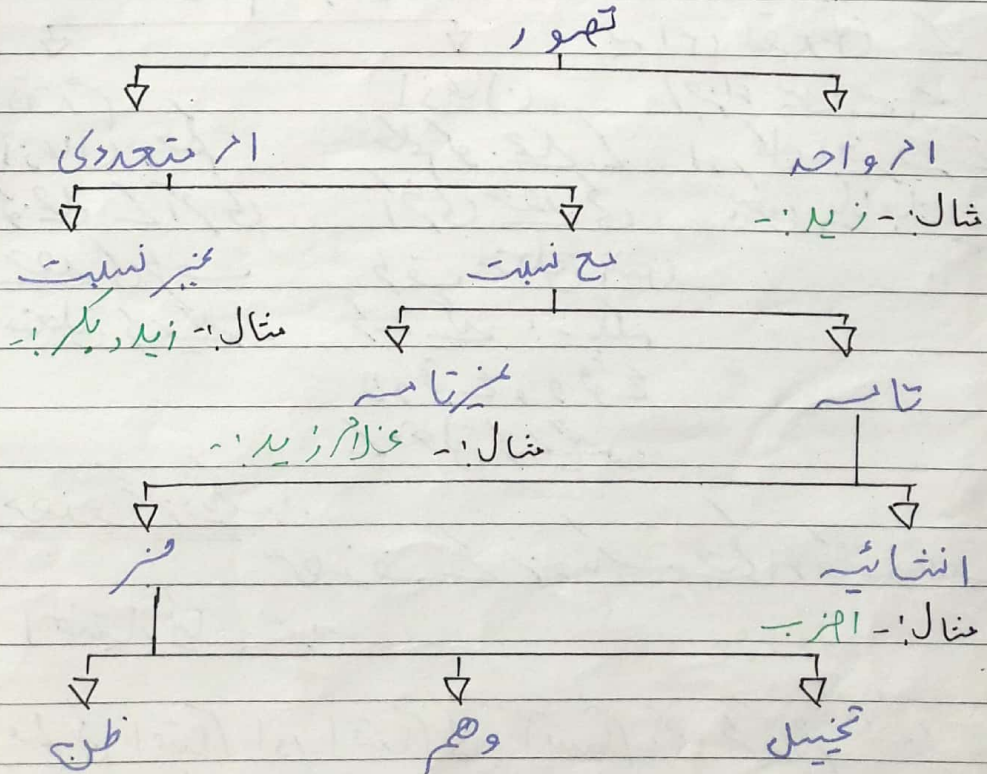 تصور
امر واحد
امر متعددی
مثال:- زید:-
مع نسبت
غیر نسبت
مثال:- زید، بکر:-
تامہ
غیر تامہ
مثال:- غلام زید:-
انشائیہ
خبر
مثال:- اضرب
تخییل
وھم
ظن